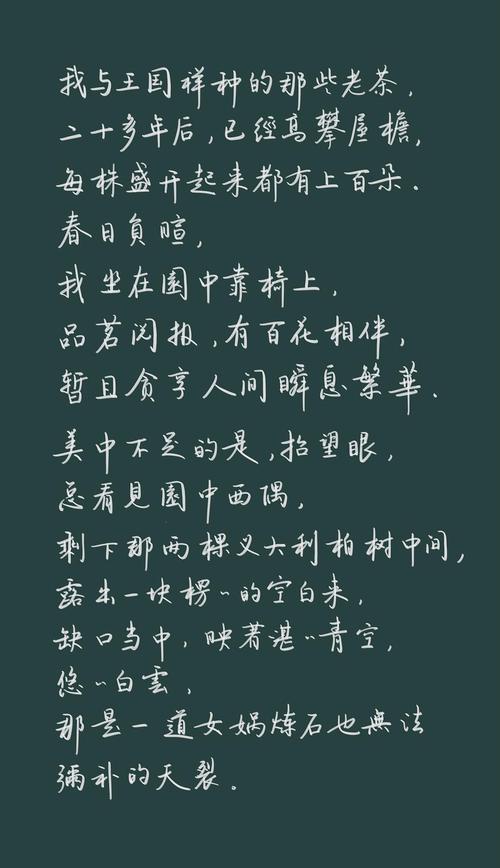 我与王国祥种的那些老茶，
二十多年后，已經高攀屋檐，
每株盛开起来都有上百朵．
春日負暄，
我坐在園中靠椅上，
品茗閲报，有百花相伴，
暂且貪享人间瞬息繁華．
美中不足的是，抬望眼，
总看見園中西隅，
剩下那两棵义大利柏树中间，
露出一块楞〃的空白来，
缺口当中，映著湛〃青空，
悠〃白雲，
那是一道女娲炼石也無法
彌补的天裂。